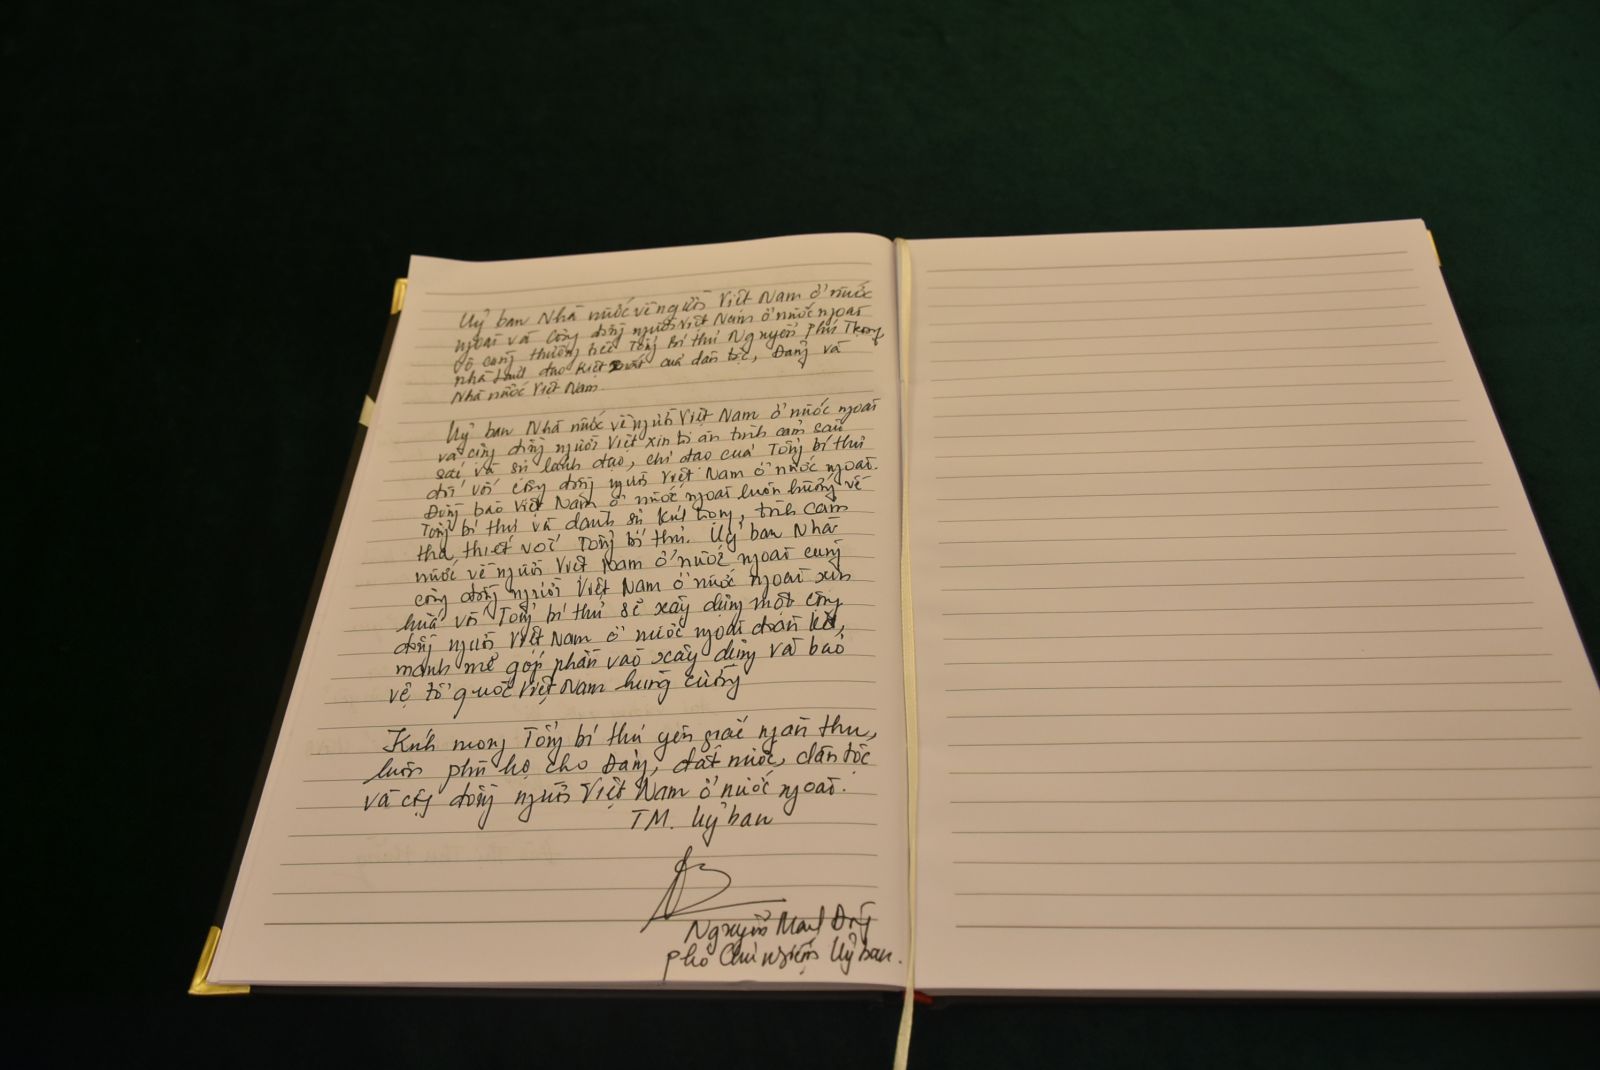 Uỷ ban Nhà nước về người Việt Nam ở nước
ngoài và Cộng đồng người Việt Nam ở nước ngoài
vô cùng thương tiếc Tổng Bí thư Nguyễn Phú Trọng
nhà lãnh đạo kiệt xuất của dân tộc, Đảng và
Nhà nước Việt Nam.
Uỷ ban Nhà nước về người Việt Nam ở nước ngoài
và cộng đồng người Việt xin tri ân tình cảm sâu
sắc và sự lãnh đạo, chỉ đạo của Tổng bí thư
đối với cộng đồng người Việt Nam ở nước ngoài.
Đồng bào Việt Nam ở nước ngoài luôn hướng về
Tổng bí thư và dành sự kính trọng, tình cảm
tha thiết với Tổng bí thư. Uỷ ban Nhà
nước về người Việt Nam ở nước ngoài cùng
cộng đồng người Việt Nam ở nước ngoài xin
hứa với Tổng bí thư sẽ xây dựng một cộng
đồng người Việt Nam ở nước ngoài đoàn kết,
mạnh mẽ góp phần vào xây dựng và bảo
vệ tổ quốc Việt Nam hùng cường
Kính mong Tổng bí thư yên giấc ngàn thu,
luôn phù hộ cho Đảng, đất nước, dân tộc
và cộng đồng người Việt Nam ở nước ngoài.
TM. Uỷ ban
Nguyễn Mạnh Đông
Phó Chủ nhiệm Uỷ ban.